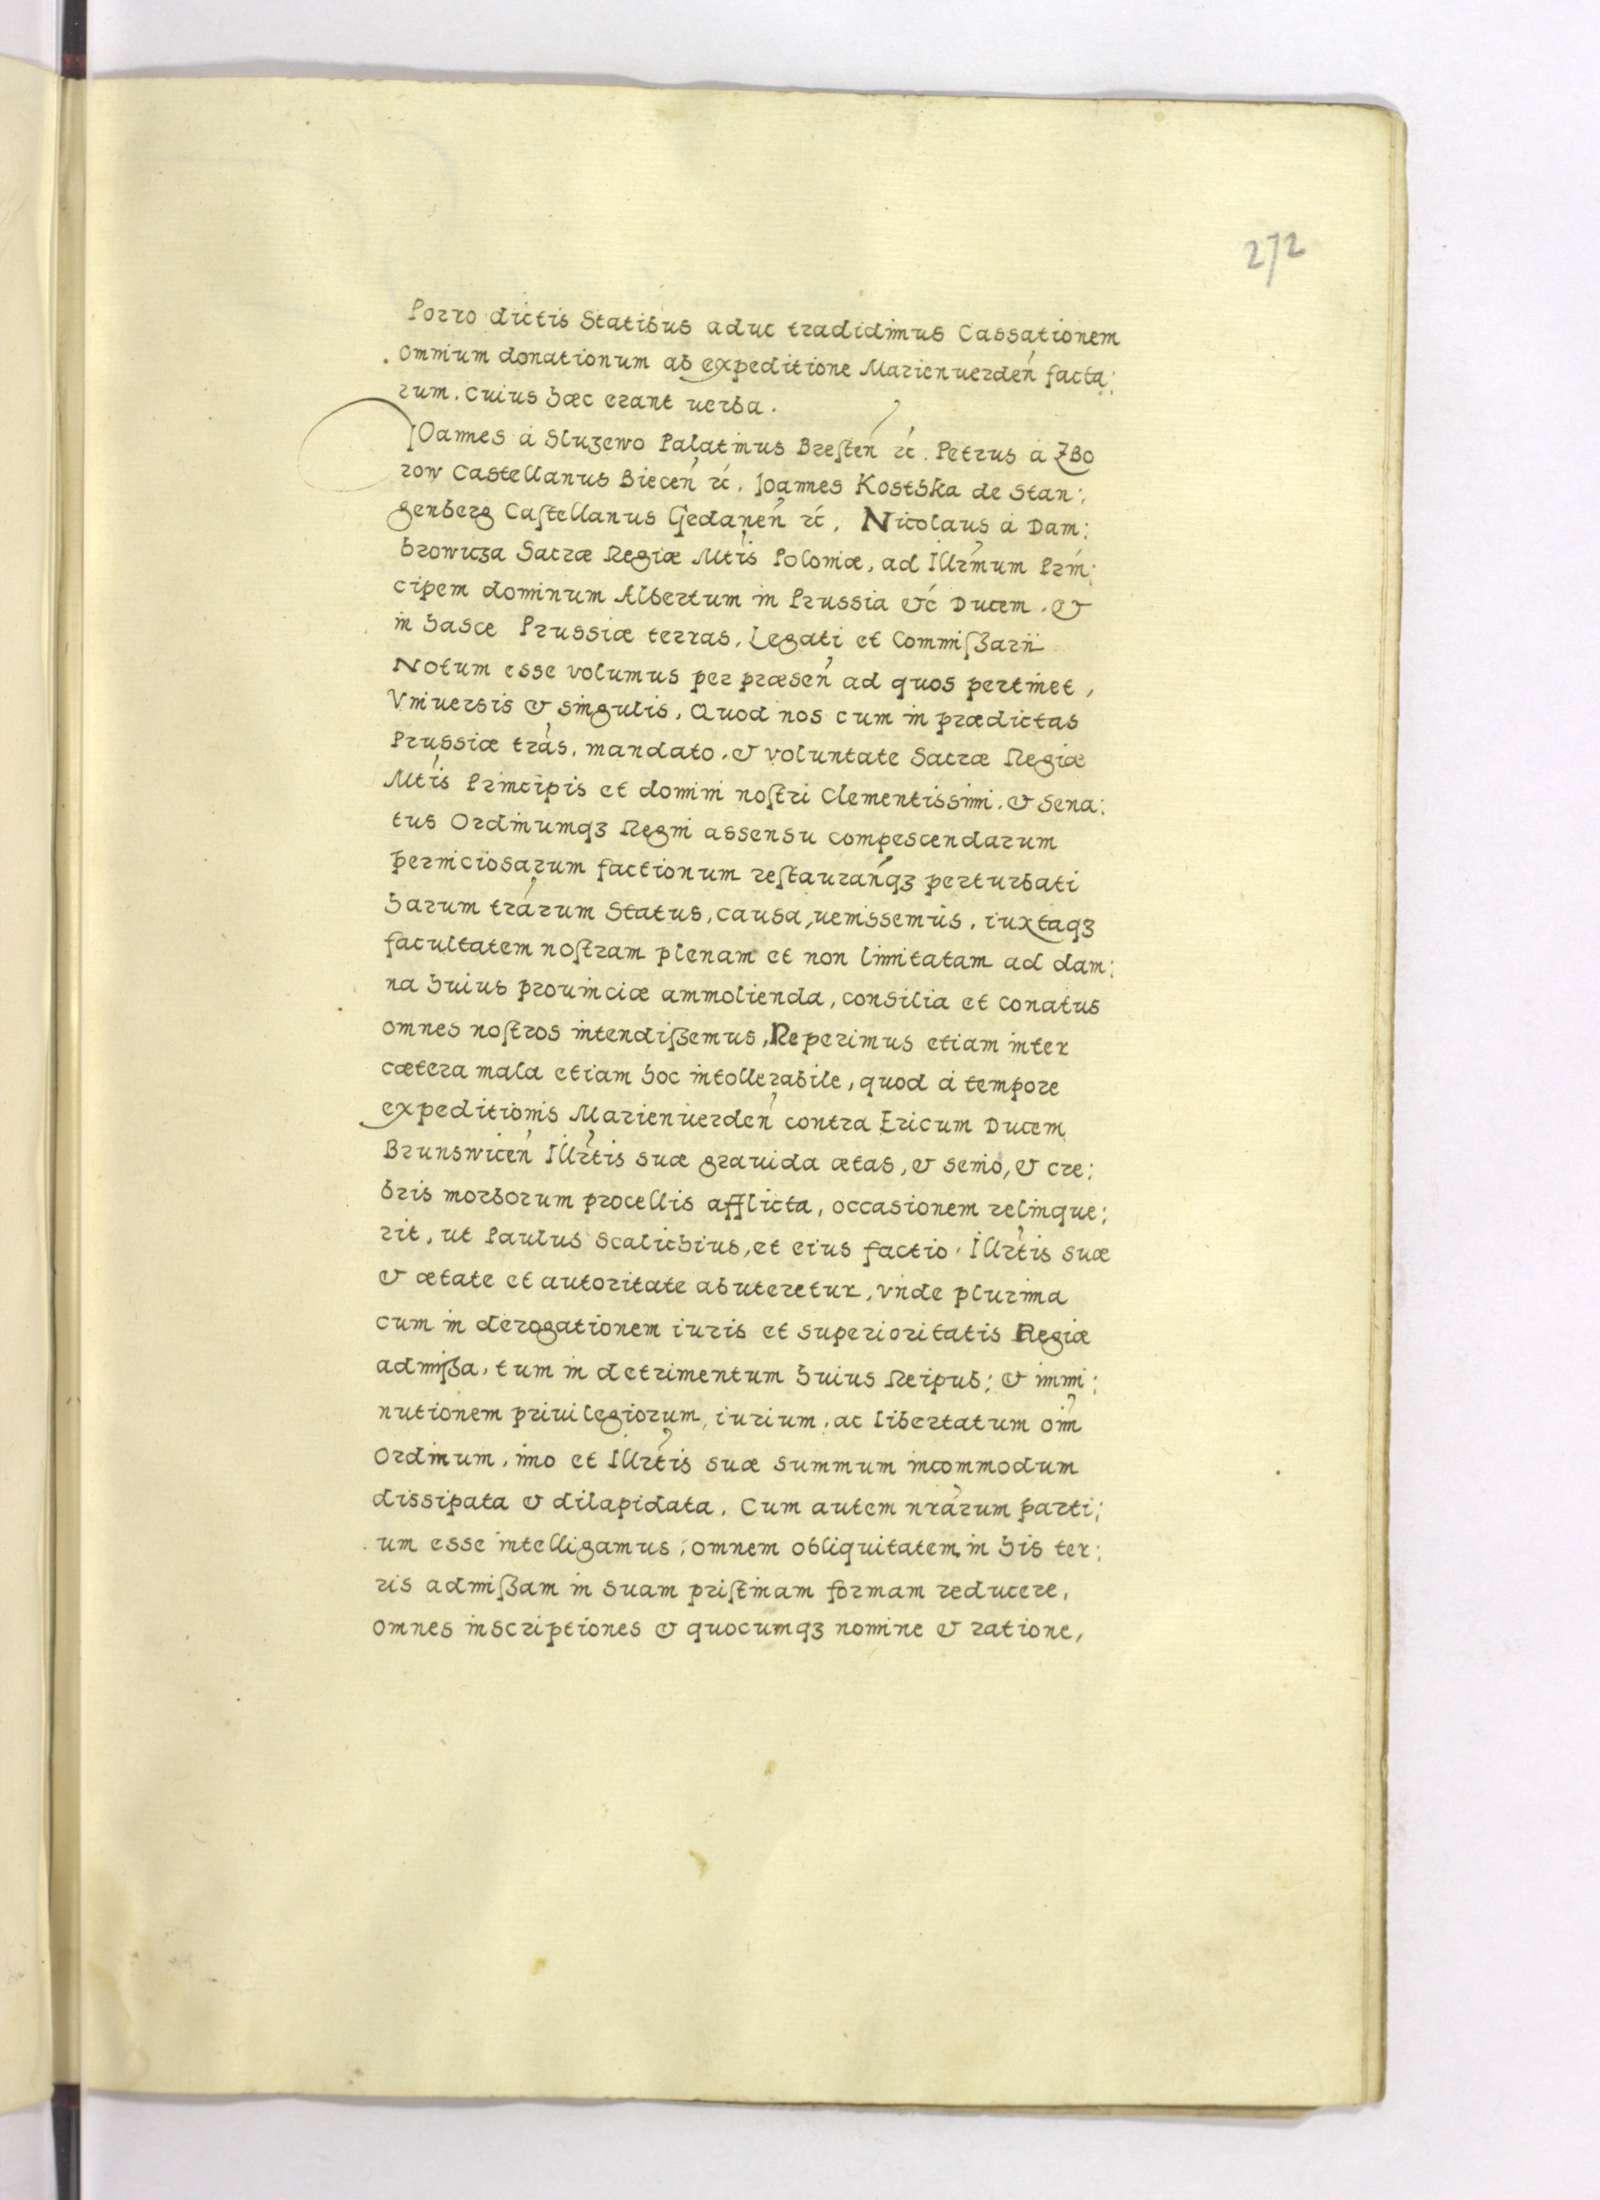 272
Porro dictis Statibus aduc tradidimus Cassationem
omnium donationum ab expeditione Marienuerdeń facta:
rum. Cuius hæc erant uerba.
JOannes á Sluzewo Palatinus Bresteń ꝛć. Petrus á ZBo
row Castellanus Bieceń ꝛć. Joannes Kostska de Stan:
genberg Castellanus Gedaneń ꝛć, Nicolaus á Dam:
browicza Sacræ Regiæ Mtis Poloniæ, ad Illrmum Prin:
cipem dominum Albertum in Prussia &ć Ducem. &
in hasce Prussiæ terras, Legati et Commißarii
Notum esse volumus per præseń ad quos pertinet,
Vniuersis & singulis, Quod nos cum in prædictas
Prussiæ trás, mandato, & voluntate Sacræ Regiæ
Mtis Principis et domini nostri Clementissimi. & Sena:
tus Ordinumqꝫ Regni assensu compescendarum
perniciosarum factionum restauráńqꝫ perturbati
harum trárum Status, causa, uenissemus, iuxtaqꝫ
facultatem nostram plenam et non limitatam ad dam:
na huius prouinciæ ammolienda, consilia et conatus
omnes nostros intendißemus, Reperimus etiam inter
cætera mala etiam hoc intollerabile, quod á tempore
expeditionis Marienuerdeń contra Ericum Ducem
Brunswiceń Illrtis suæ grauida ætas, & senio, & cre:
bris morborum procellis afflicta, occasionem relinque:
rit, ut Paulus Scalichius, et eius factio. Illrtis suæ
& ætate et autoritate abuteretur, vnde plurima
cum in derogationem iuris et superioritatis Regiæ
admißa, tum in detrimentum huius Reipub: & immi:
nutionem priuilegiorum, iurium, ac libertatum oim
Ordinum, imo et Illrtis suæ summum incommodum
dissipata & dilapidata. Cum autem nrárum parti:
um esse intelligamus, omnem obliquitatem in his ter:
ris admißam in suam pristinam formam reducere,
omnes inscriptiones & quocumqꝫ nomine & ratione,